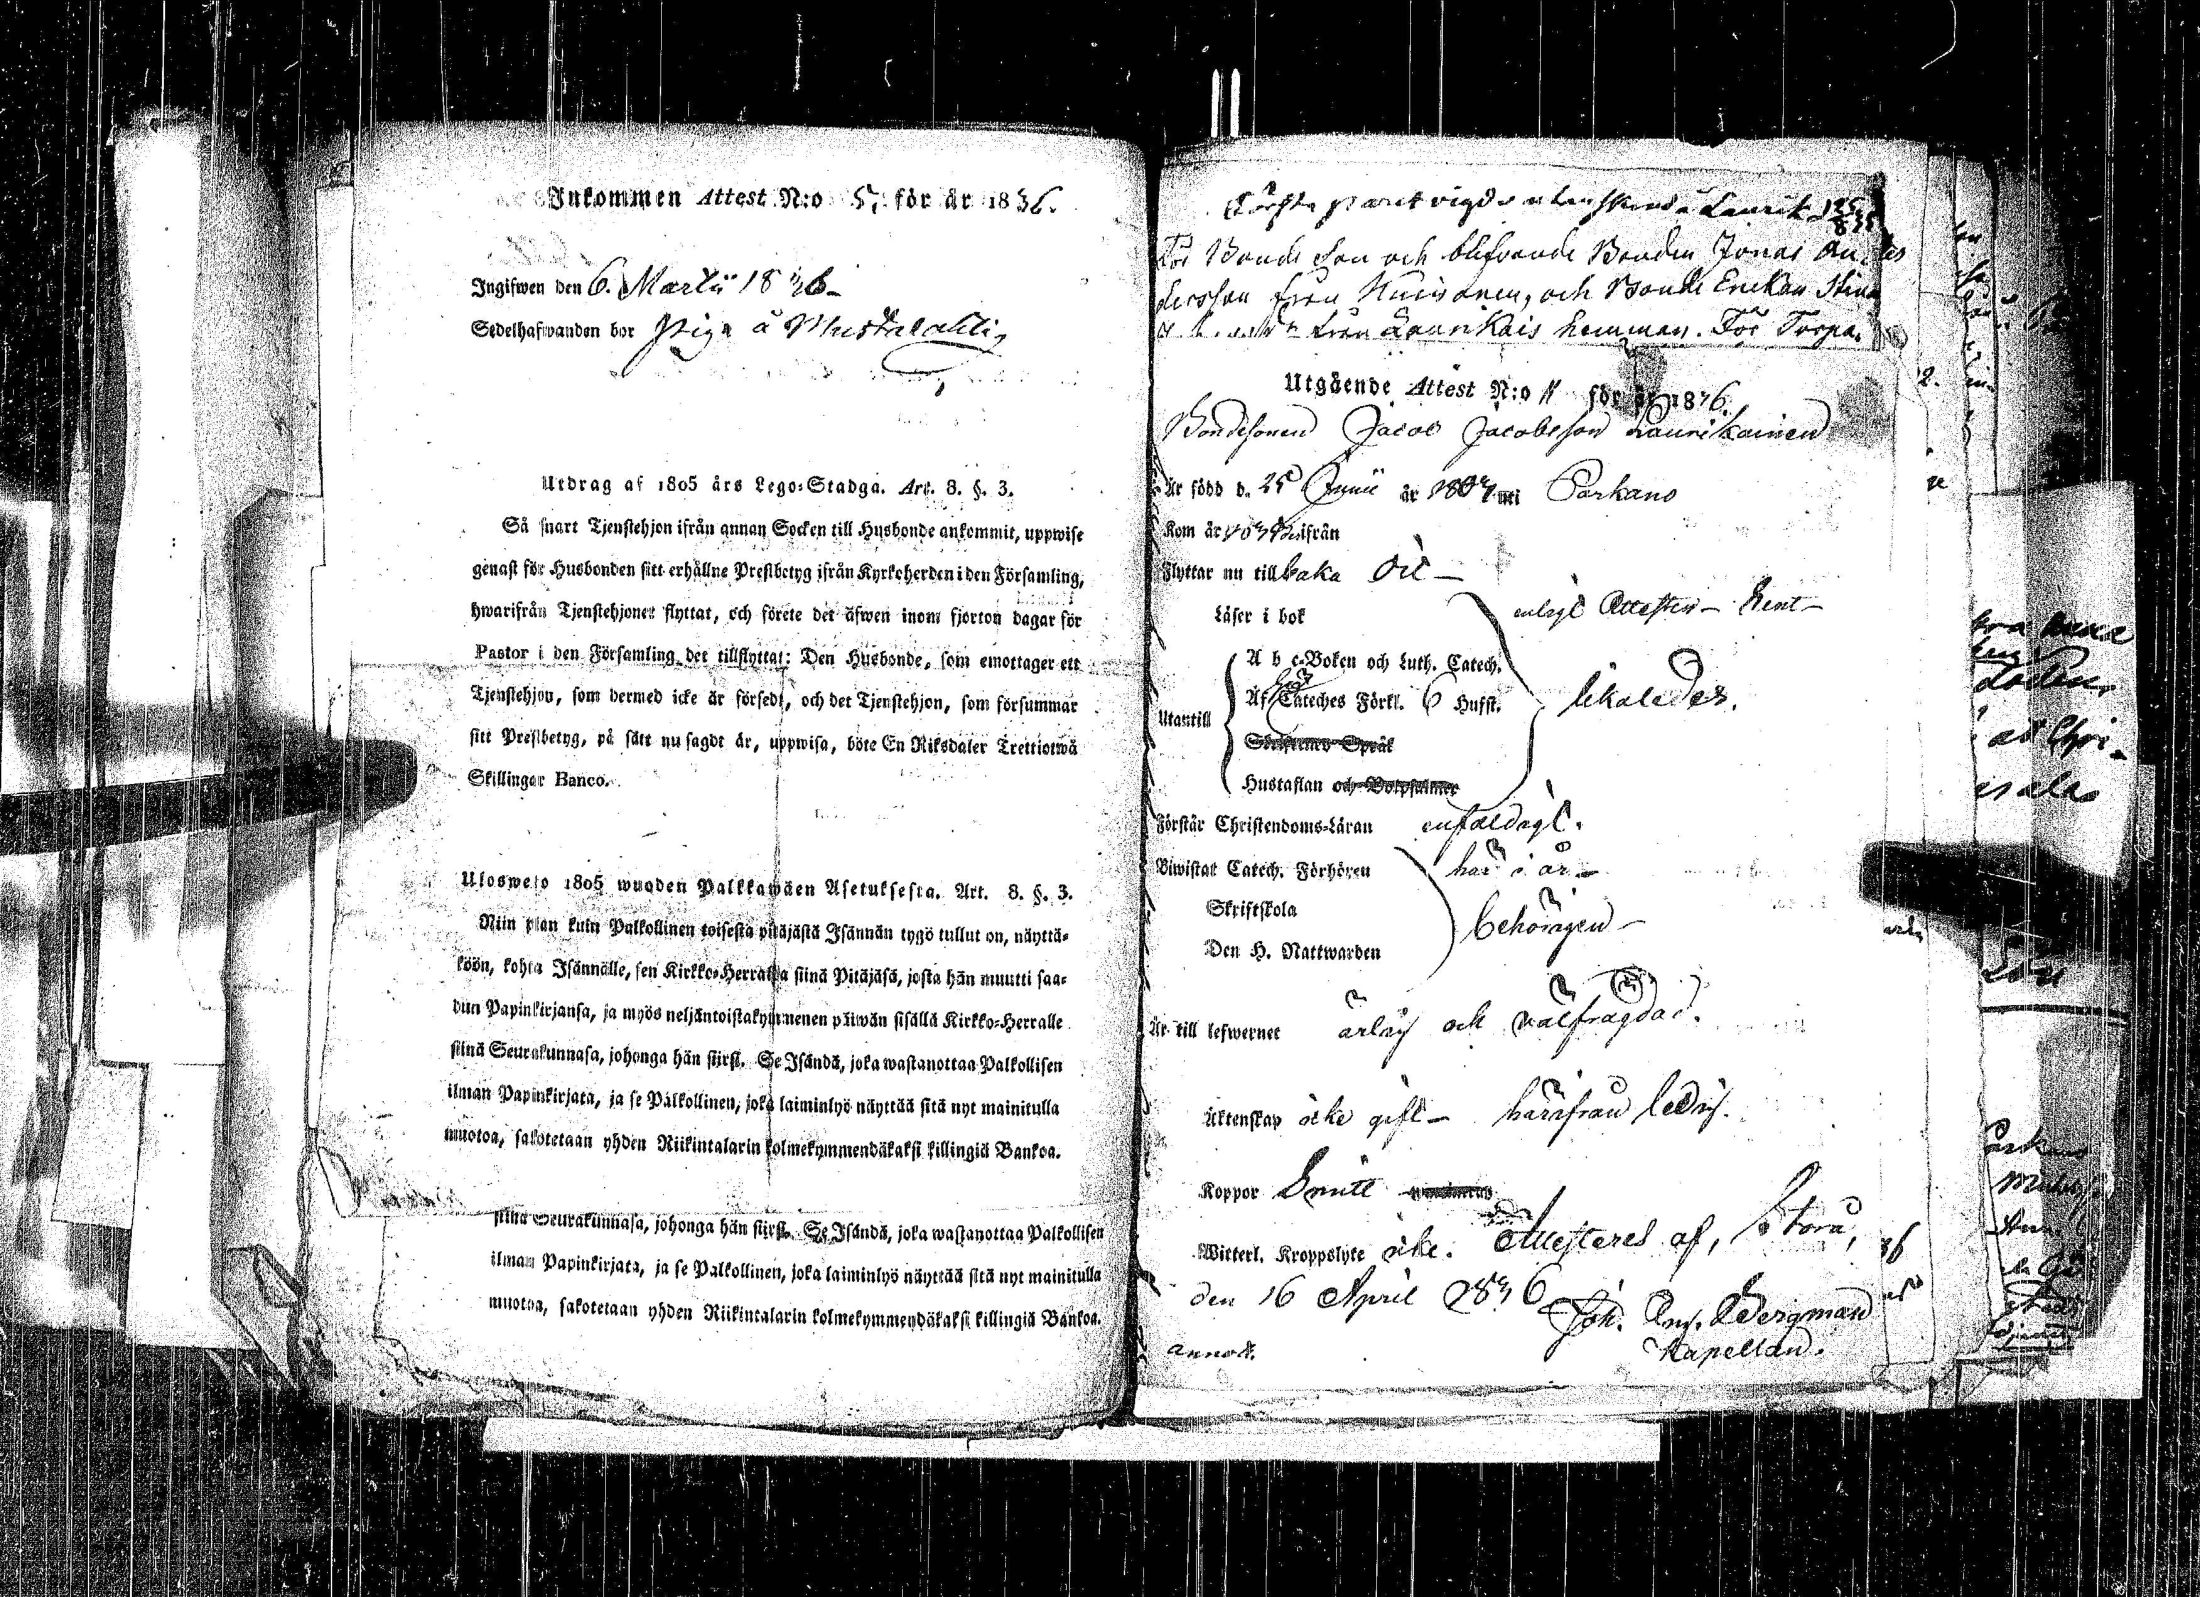 Inkommen Attest N:o 5, för år 1836.
Ingifwen den 6. Martii 1836
Sedelhafwanden bor Piga å Mustalahti,
Utdrag af 1805 års Lego-Stadga. Art. 8. §. 3.
Så snart Tjenstehjon ifrån annan Socken till Husbonde ankommit, uppwise
genast för Husbonden sitt erhållne Prestbetyg ifrån Kyrkoherden i den Församling,
hwarifrån Tjenstehjonet flyttat, och förete det äfwen inom fjorton dagar för
Pastor i den Församling det tillflyttat: Den Husbonde, som emottager ett
Tjenstehjon, som dermed icke är försedt, och det Tjenstehjon, som försummar
sitt Prestbetyg, på sätt nu sagdt är, uppwisa, böte En Riksdaler Trettiotwå
Skillingar Banco.
Uloswelo 1805 wuoden Palkkawäen Asetuksesta. Art. 8. §. 3.
Niin pian kuin Palkollinen toisesta pitäjästä Isännän tygö tullut on, näyttä-
köön, kohta Isännälle, sen Kirkko-Herralda siinä Pitäjäsä, josta hän muutti saa-
dun Papinkirjansa, ja myös neljäntoistakymmenen päiwän sisällä Kirkko-Herralle
siinä Seurakunnasa, johonga hän siirsi. Se Isändä, joka wastanottaa Palkollisen
ilman Papinkirjata, ja se Palkollinen, joka laiminlyö näyttää sitä nyt mainitulla
muotoa, sakotetaan yhden Riikintalarin kolmekymmendäkaksi killingiä Bankoa.
siinä Seurakunnasa, johonga hän siirsi. Se Isändä, joka wastanottaa Palkollisen
ilman Papinkirjata, ja se Palkollinen, joka laiminlyö näyttää sitä nyt mainitulla
muotoa, sakotetaan yhden Riikintalarin kolmekymmendäkaksi killingiä Bankoa.
paret vigdes
För Bonde Son och blifvande Bonden Jonas An-
dersson från och Bonde Enckan Stina
från Laurikais hemman. För Torpa.
Utgående Attest N:o 11 för år 1836.
Bondesonen Jacob Jacobsson Laurikainen
Är född d. 25 Junii år 1807 uti Parkano
Kom år ifrån
Flyttar nu tillbaka dit
Läser i bok enligt Attesten
A b c-Boken och Luth. Catech.
Utantill Af Cateches Förkl. 6 Hufst. likaledes.
Skriftenes Språk
Hustaflan och Botpsalmer
Förstår Christendoms-Läran enfaldigt.
Biwistat Catech. Förhören här i år
Skriftskola
Den H. Nattwarden behörigen
Är till lefwernet ärlig och välfrägdad.
Äktenskap icke gift härifrån ledig.
Koppor haft
Witterl. Kroppslyte icke. Attesteres af, Storå,
den 16 April 1836 Joh. Bergman
Kapellan.